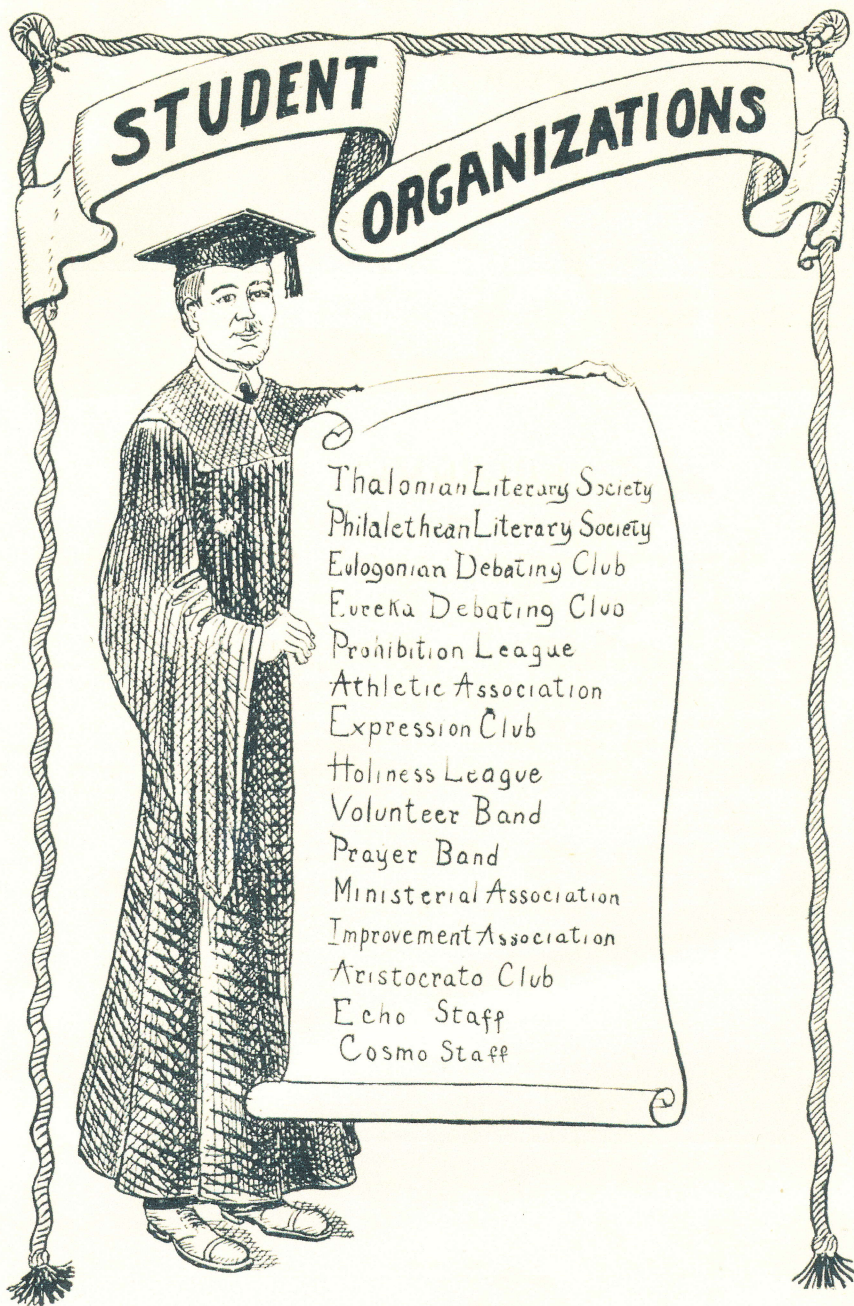 STUDENT
ORGANIZATIONS
Thalonian Literary Society
Philalethean Literary Society
Eulogonian Debating Club
Eureka Debating Club
Prohibition League
Athletic Association
Expression Club
Holiness League
Volunteer Band
Prayer Band
Ministerial Association
Improvement Association
Aristocrato Club
Echo Staff
Cosmo Staff